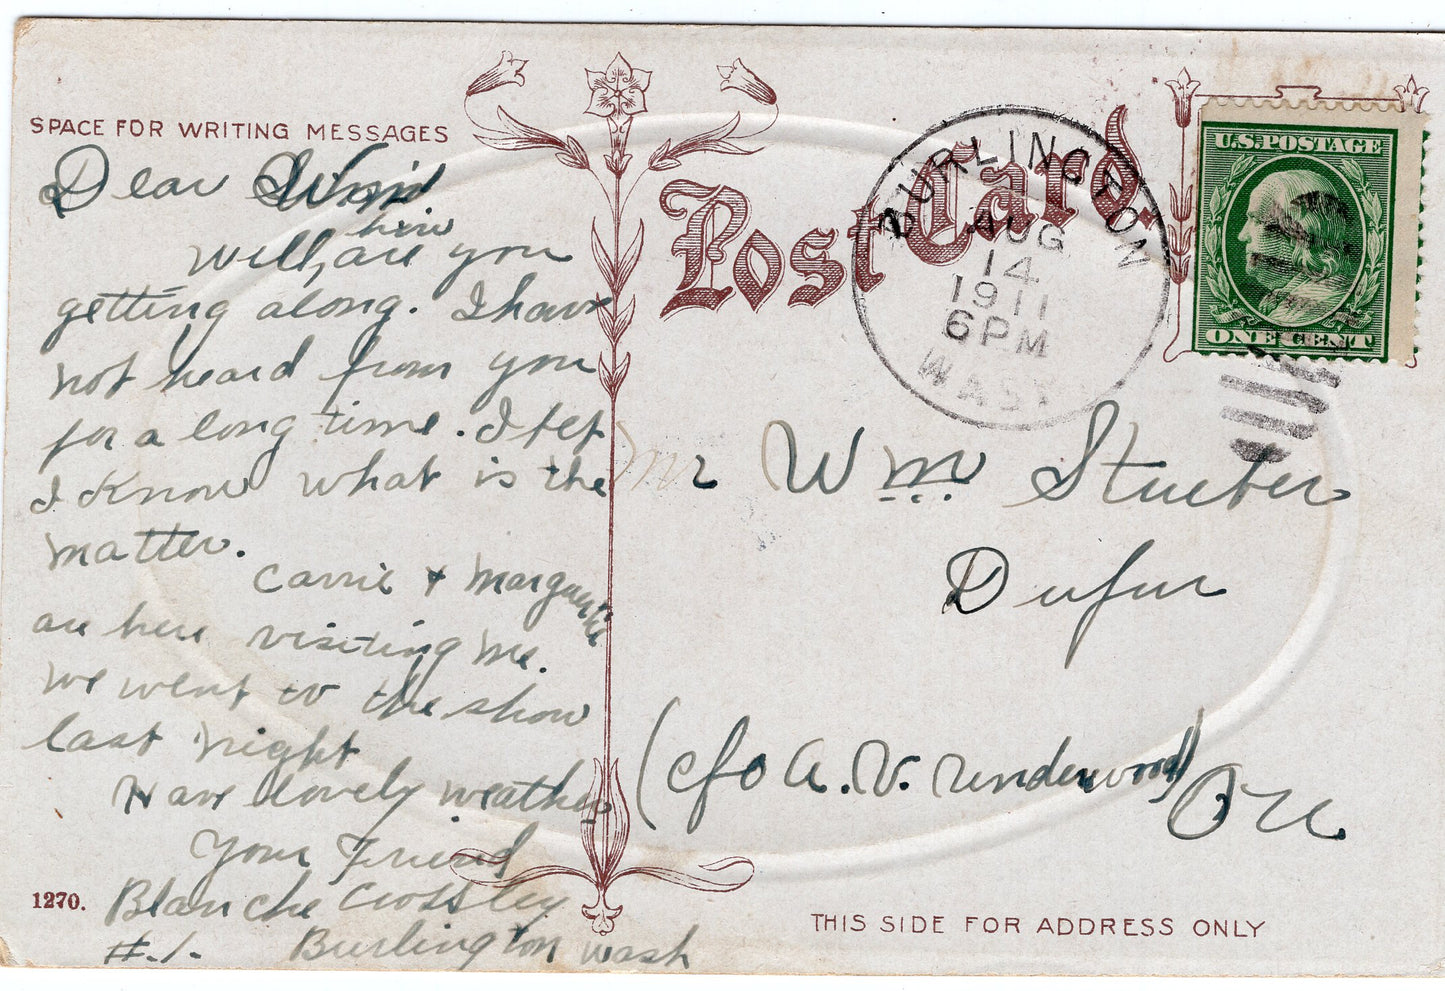 SPACE FOR WRITING MESSAGES
Dear
how
Well, are you
getting along. I have
not heard from you
for a long time. I
I Know what is the
matter.
Carrie + Marguerite
are here visiting me.
we went to the show
last night
Have lovely weather
Your Friend
Blanche Crossley
#.1. Burlington Wash
1270.
Post Card.
BURLINGTON
AUG
14
1911
6 PM
WASH
U.S. POSTAGE
ONE CENT
Mr Wm Stueber
Dufur
(c/o A. V. Underwood) Ore
THIS SIDE FOR ADDRESS ONLY